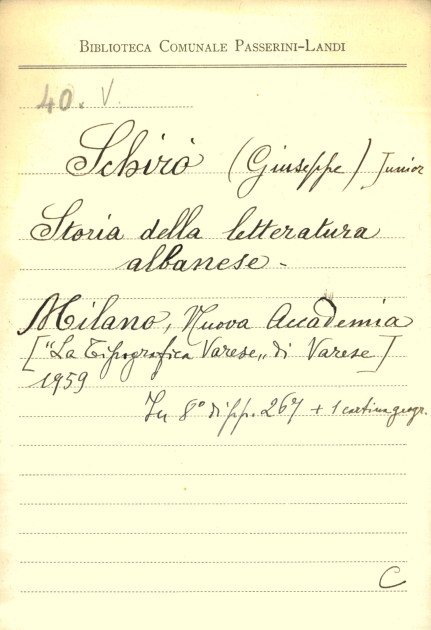 BIBLIOTECA COMUNALE PASSERINI-LANDI
40. V.
Schirò (Giuseppe) Junior
Storia della letteratura
albanese -
Milano, Nuova Accademia
["La Tipografica Varese„ di Varese]
1959
In 8° di pp. 267 + 1 cartina geogr.
C